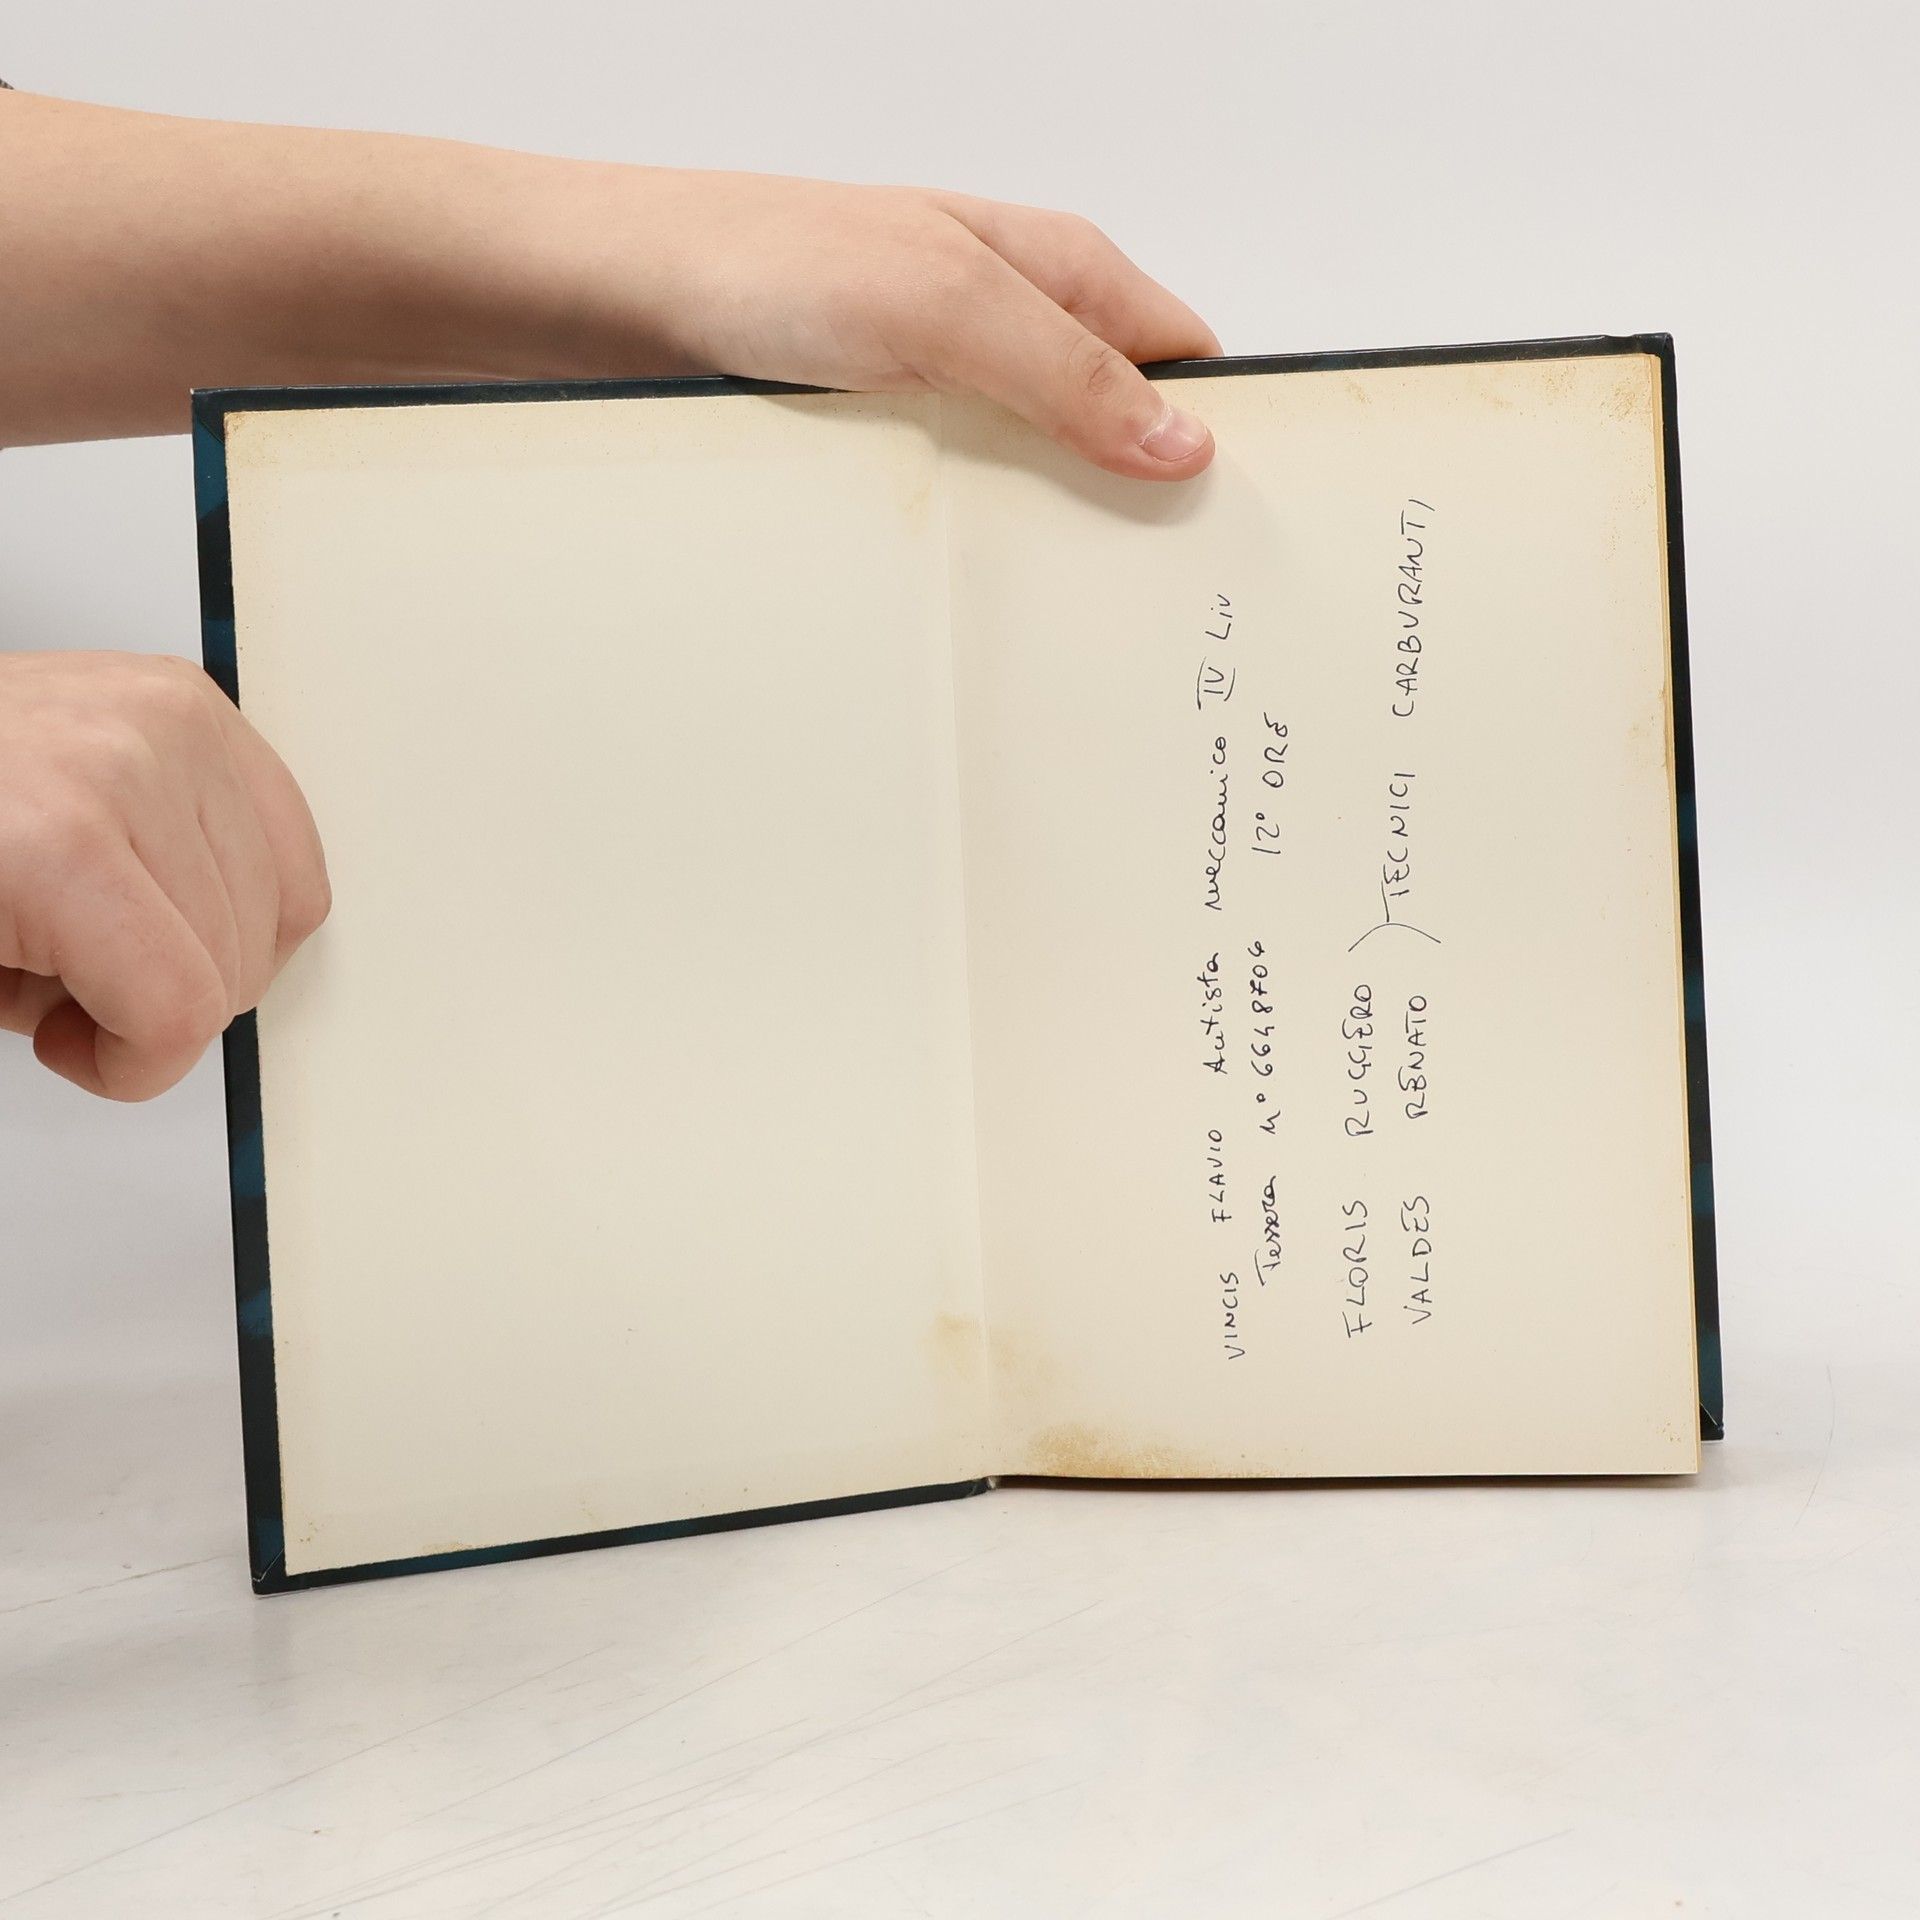 VINCIS FLAVIO Autista meccanico IV Liv
Tessera n° 6648704 12° ORE
FLORIS RUGGERO
VALDES RENATO ) TECNICI CARBURANTI